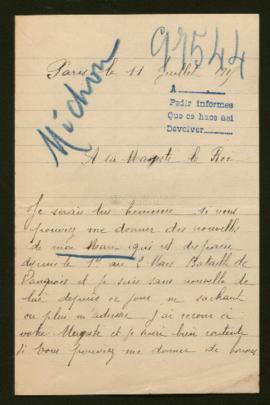 97544
Paris le 11 Juillet 1917
A
Pedir informes
Que se hace así
Devolver
Michon
A sa Majesté le Roi
Je serais très heureuse si vous
pouviez me donner des nouvelles
de mon Mari qui est disparu
depuis le 1er au 2 Mars Bataille de
et je suis sans nouvelle de
lui depuis ce jour ne sachant
ou plus m'adresse j'ai recours à
votre Majesté et je serai bien contente
si vous pouviez me donner de bonnes